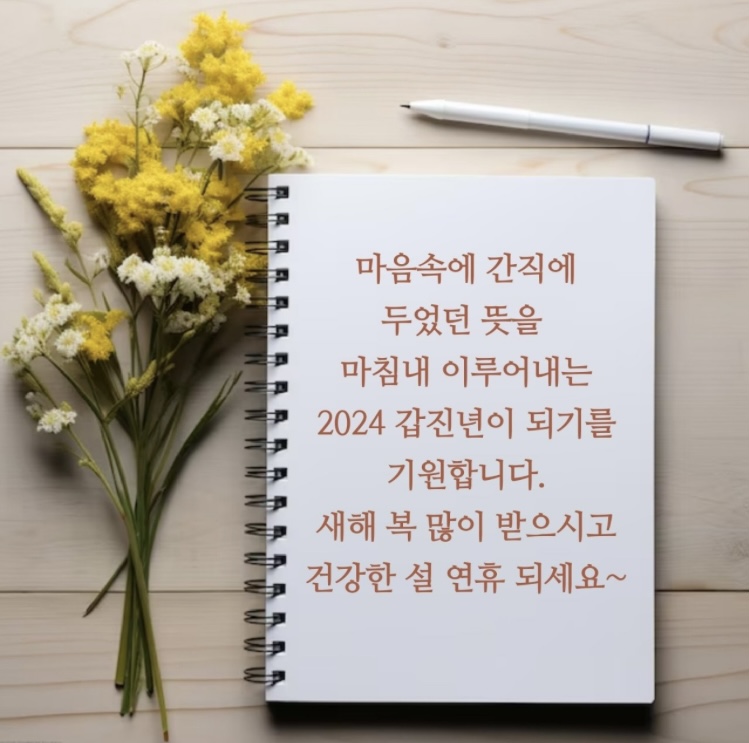 마음속에 간직에
두었던 뜻을
마침내 이루어내는
2024 갑진년이 되기를
기원합니다.
새해 복 많이 받으시고
건강한 설 연휴 되세요~